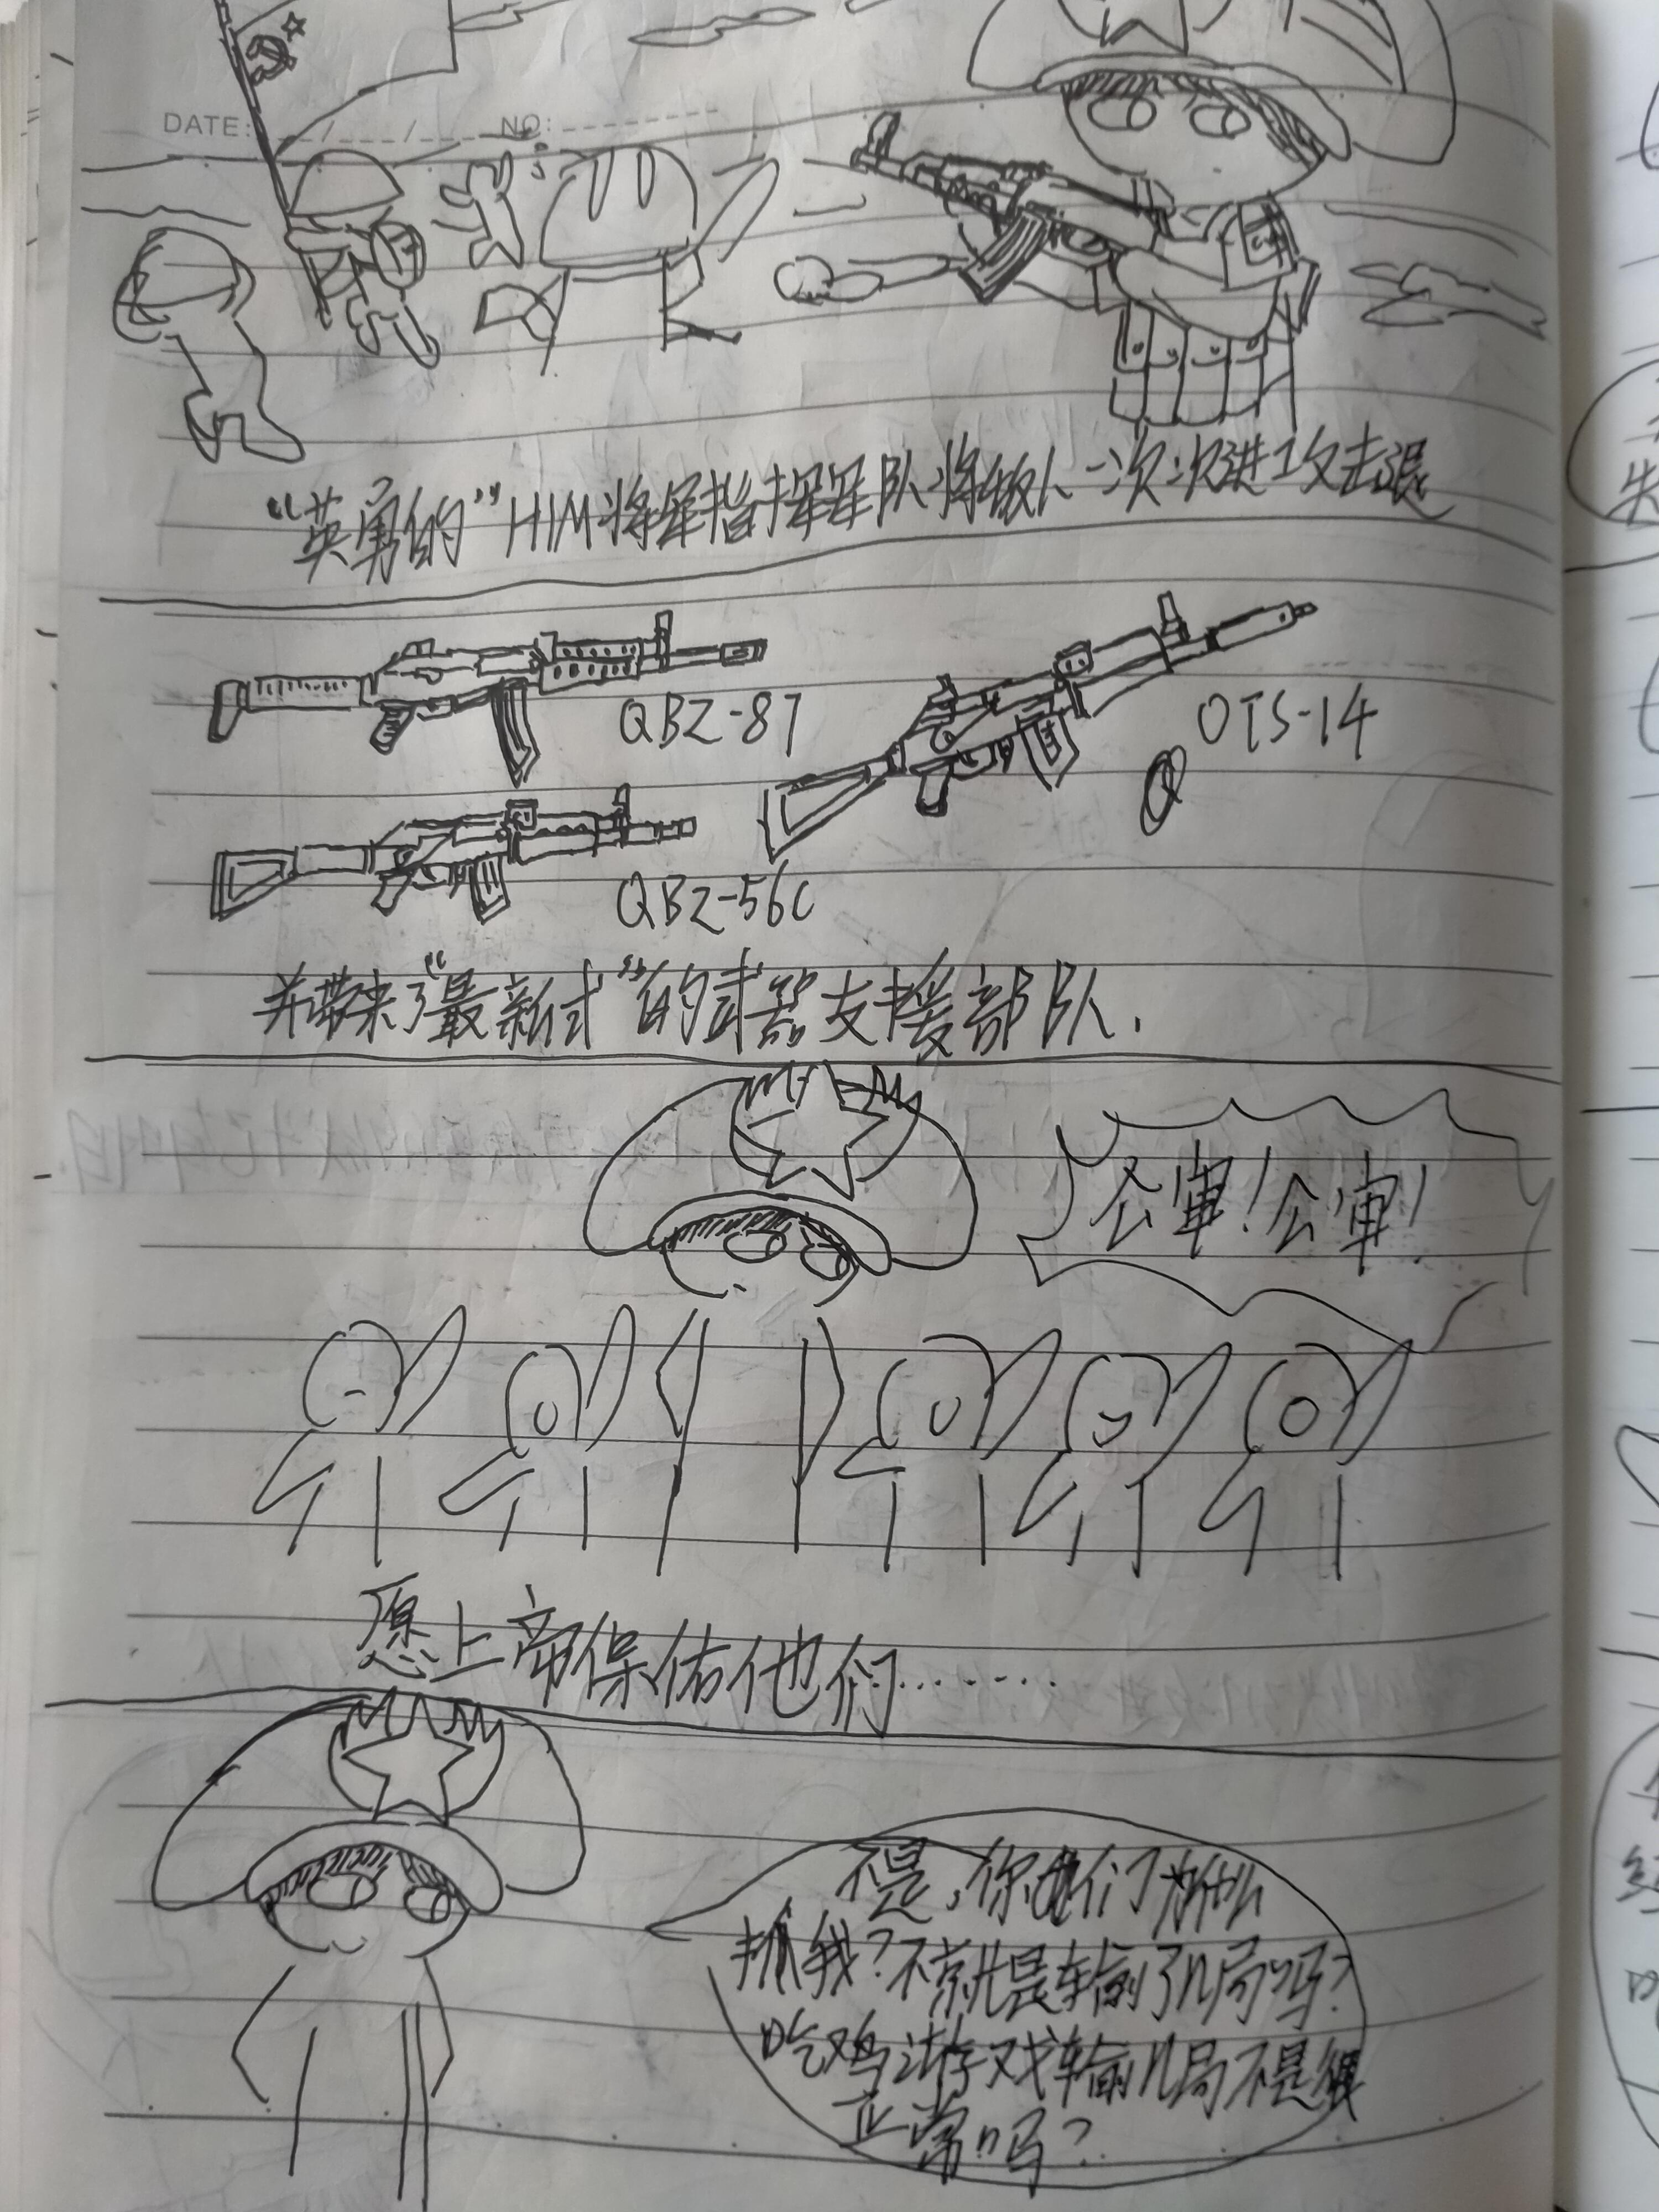 DATE: / / NO:
“英勇的”HIM将军指挥军队将敌人一次次进攻击退
QBZ-87
OTS-14
QBZ-56C
并带来了“最新式”的武器支援部队.
公审!公审!
愿上帝保佑他们.......
不是,你们为什么
抓我?不就是输了几局吗?
吃鸡游戏输几局不是很
正常吗?